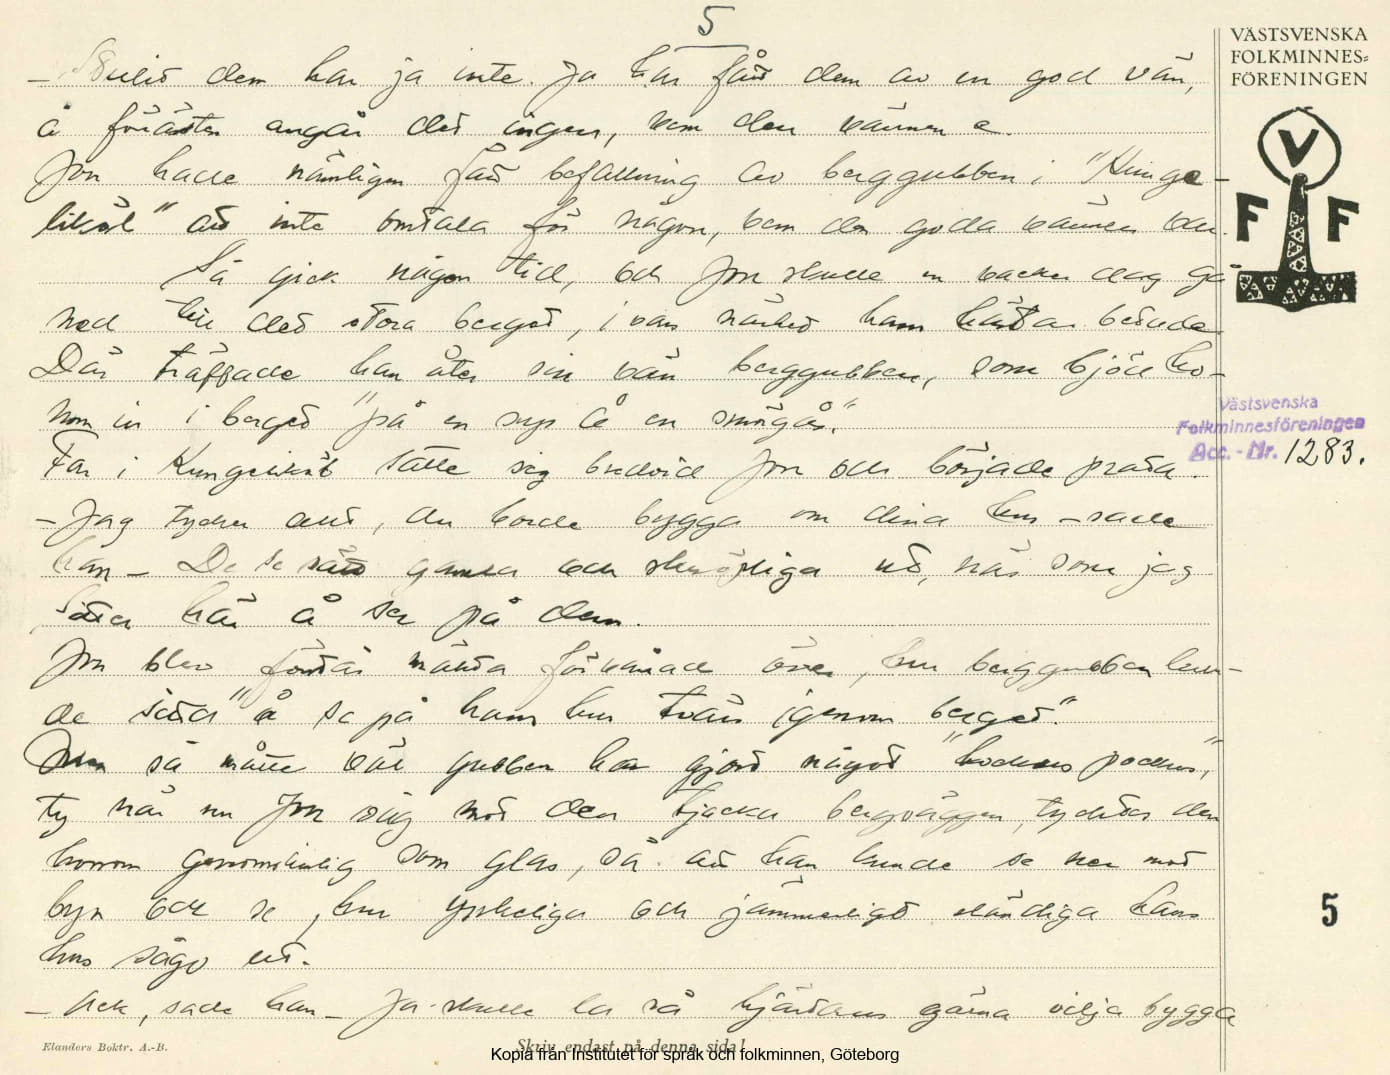 5
VÄSTSVENSKA
FOLKMINNES-
FÖRENINGEN
V
F F
– Stulit dem har ja inte. Ja har fått dem av en god vän,
å förästen angår det ingen, vem den vännen e.
Jon hade nämligen fått befallning av berggubben i "Kunge-
likät" att inte omtala för någon, vem den goda vännen var.
Så gick någon tid, och Jon skulle en vacker dag gå
ned till det stora berget, i vars närhet hans hästar betade
Där träffade han åter sin vän berggubben, som bjöd ho-
nom in i berget "på en sup å en smörgås."
Far i Kungelikät satte sig bredvid Jon och började prata.
– Jag tycker att, du borde bygga om dina hus – sade
han – De se rätt gamla och skröpliga ut, när som jag
sitter här å ser på dem.
Jon blev förstås mäkta förvånad över, hur berggubben kun-
de sitta "å se på hans hus tvärs igenom berget."
Men så måtte väl gubben ha gjort något "hockus pockus",
ty när nu Jon såg mot den tjocka bergväggen, tycktes den
honom genomskinlig som glas, så att han kunde se ner mot
byn och se, hur yskeliga och jämmerligt eländiga hans
hus sågo ut.
– Ack, sade han – Ja skulle la så hjärtans gärna vilja bygga
Västsvenska
Folkminnesföreningen
Acc. - Nr. 1283.
5
Elanders Boktr. A.-B.
Skriv endast på denna sida!
Kopia från Institutet för språk och folkminnen, Göteborg